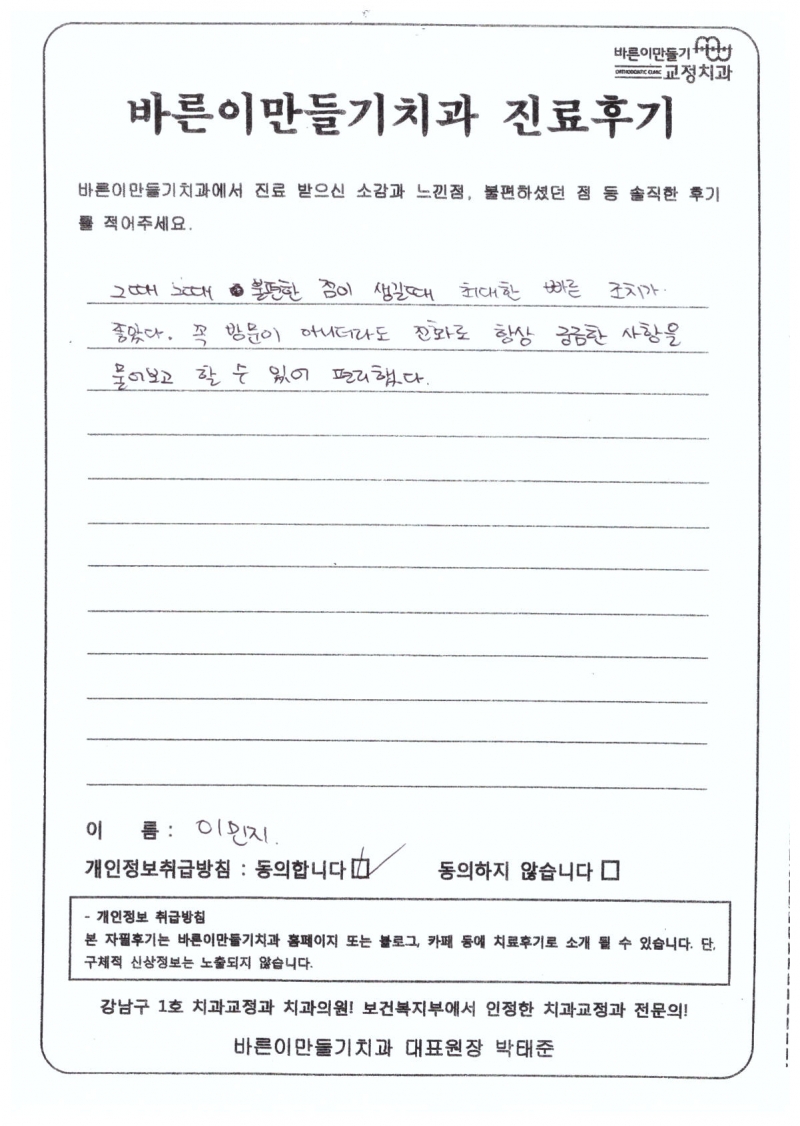 바른이만들기
ORTHODONTIC CLINIC 교정치과
바른이만들기치과 진료후기
바른이만들기치과에서 진료 받으신 소감과 느낀점, 불편하셨던 점 등 솔직한 후기
를 적어주세요.
그때 그때 불편한 점이 생길때 최대한 빠른 조치가
좋았다. 꼭 방문이 아니더라도 전화로 항상 궁금한 사항을
물어보고 할 수 있어 편리했다.
이 름 : 이민지.
개인정보취급방침 : 동의합니다 ☑ 동의하지 않습니다 □
- 개인정보 취급방침
본 자필후기는 바른이만들기치과 홈페이지 또는 블로그, 카페 등에 치료후기로 소개 될 수 있습니다. 단,
구체적 신상정보는 노출되지 않습니다.
강남구 1호 치과교정과 치과의원! 보건복지부에서 인정한 치과교정과 전문의!
바른이만들기치과 대표원장 박태준